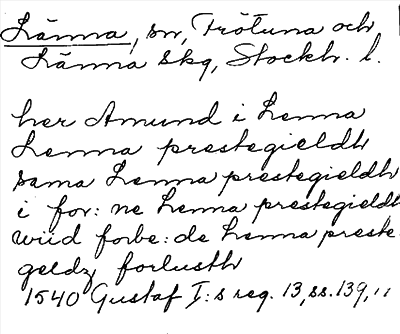 Länna, sn, Frötuna och
Länna skg, Stockh. l.
her Amund i Lenna
Lenna prestegieldh
sama Lenna prestegieldh
i for: ne Lenna prestegieldh
wiid forbe: de Lenna preste
geldz forlusth
1540 Gustaf I:s reg. 13, ss. 139, ,,